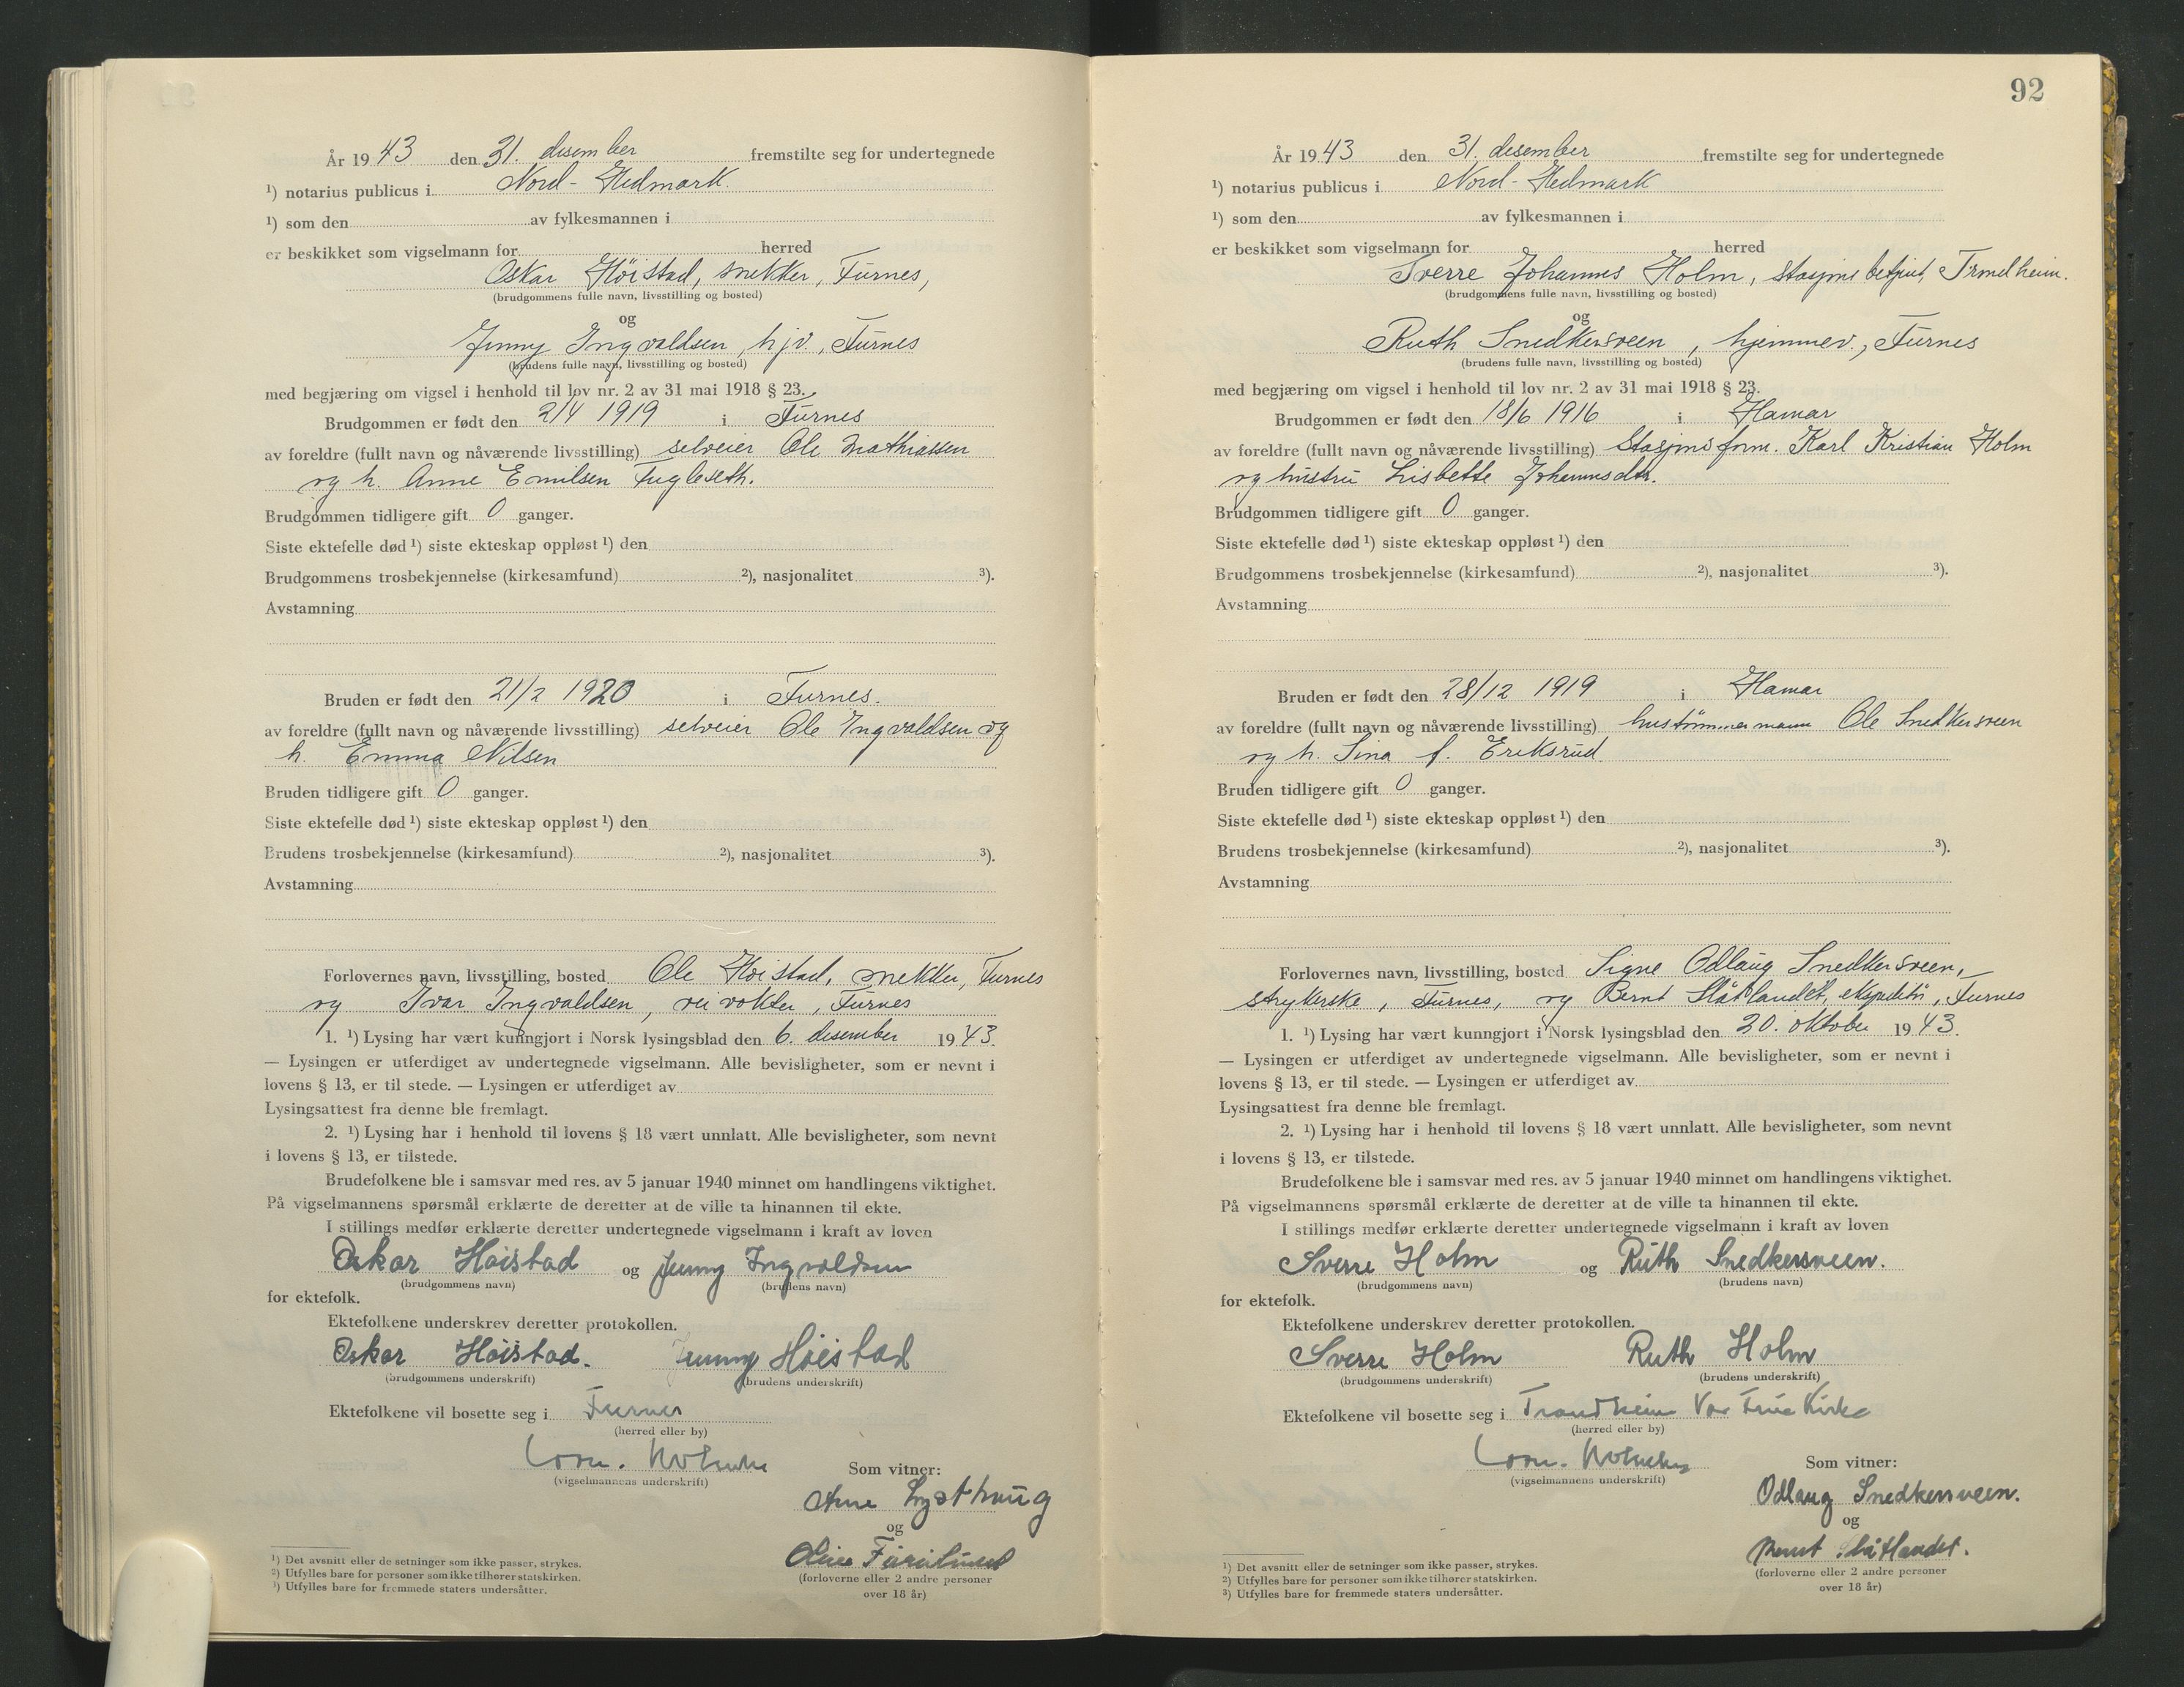 År 19 43 den 31. desember fremstilte seg for undertegnede
¹) notarius publicus i Nord-Hedmark.
¹) som den av fylkesmannen i
er beskikket som vigselmann for herred
Oskar Höistad, snekker, Furnes,
(brudgommens fulle navn, livsstilling og bosted)
og
Jenny Ingvaldsen, hjv., Furnes
(brudens fulle navn, livsstilling og bosted)
med begjæring om vigsel i henhold til lov nr. 2 av 31 mai 1918 § 23.
Brudgommen er født den 2/4 1919 i Furnes
av foreldre (fullt navn og nåværende livsstilling) selveier Ole Mathiassen
og h. Anne Emilsen Fugleseth.
Brudgommen tidligere gift 0 ganger.
Siste ektefelle død ¹) siste ekteskap oppløst ¹) den
Brudgommens trosbekjennelse (kirkesamfund) ²), nasjonalitet ³).
Avstamning
Bruden er født den 21/2 1920 i Furnes.
av foreldre (fullt navn og nåværende livsstilling) selveier Ole Ingvaldsen og
h. Emma Nilsen
Bruden tidligere gift 0 ganger.
Siste ektefelle død ¹) siste ekteskap oppløst ¹) den
Brudens trosbekjennelse (kirkesamfund) ²), nasjonalitet ³).
Avstamning
Forlovernes navn, livsstilling, bosted Ole Höistad, snekker, Furnes
og Ivar Ingvaldsen, veivokter, Furnes
1. ¹) Lysing har vært kunngjort i Norsk lysingsblad den 6. desember 19 43.
— Lysingen er utferdiget av undertegnede vigselmann. Alle bevisligheter, som er nevnt i
lovens § 13, er til stede. — Lysingen er utferdiget av
Lysingsattest fra denne ble fremlagt.
2. ¹) Lysing har i henhold til lovens § 18 vært unnlatt. Alle bevisligheter, som nevnt
i lovens § 13, er tilstede.
Brudefolkene ble i samsvar med res. av 5 januar 1940 minnet om handlingens viktighet.
På vigselmannens spørsmål erklærte de deretter at de ville ta hinannen til ekte.
I stillings medfør erklærte deretter undertegnede vigselmann i kraft av loven
Oskar Höistad og Jenny Ingvaldsen
(brudgommens navn) (brudens navn)
for ektefolk.
Ektefolkene underskrev deretter protokollen.
Oskar Höistad. Jenny Höistad
(brudgommens underskrift) (brudens underskrift)
Ektefolkene vil bosette seg i Furnes
(herred eller by)
(vigselmannens underskrift) Som vitner:
Lysthaug
og
(forloverne eller 2 andre personer
over 18 år)
¹) Det avsnitt eller de setninger som ikke passer, strykes.
²) Utfylles bare for personer som ikke tilhører statskirken.
³) Utfylles bare for fremmede staters undersåtter.
92
År 19 43 den 31. desember fremstilte seg for undertegnede
¹) notarius publicus i Nord-Hedmark
¹) som den av fylkesmannen i
er beskikket som vigselmann for herred
Sverre Johannes Holm, stasjonsbetjent, Trondheim.
(brudgommens fulle navn, livsstilling og bosted)
og
Ruth Snedkersveen, hjemmev., Furnes
(brudens fulle navn, livsstilling og bosted)
med begjæring om vigsel i henhold til lov nr. 2 av 31 mai 1918 § 23.
Brudgommen er født den 18/6 1916 i Hamar
av foreldre (fullt navn og nåværende livsstilling) Stasjonsform. Karl Kristian Holm
og hustru Lisbette Johannesdtr.
Brudgommen tidligere gift 0 ganger.
Siste ektefelle død ¹) siste ekteskap oppløst ¹) den
Brudgommens trosbekjennelse (kirkesamfund) ²), nasjonalitet ³).
Avstamning
Bruden er født den 28/12 1919 i Hamar
av foreldre (fullt navn og nåværende livsstilling) hustömmermann Ole Snedkersveen
og h. Sina f. Eriksrud.
Bruden tidligere gift 0 ganger.
Siste ektefelle død ¹) siste ekteskap oppløst ¹) den
Brudens trosbekjennelse (kirkesamfund) ²), nasjonalitet ³).
Avstamning
Forlovernes navn, livsstilling, bosted Signe Odlaug Snedkersveen,
strykerske, Furnes, og Bernt Slåtlandet, ekspeditör, Furnes
1. ¹) Lysing har vært kunngjort i Norsk lysingsblad den 20. oktober 19 43.
— Lysingen er utferdiget av undertegnede vigselmann. Alle bevisligheter, som er nevnt i
lovens § 13, er til stede. — Lysingen er utferdiget av
Lysingsattest fra denne ble fremlagt.
2. ¹) Lysing har i henhold til lovens § 18 vært unnlatt. Alle bevisligheter, som nevnt
i lovens § 13, er tilstede.
Brudefolkene ble i samsvar med res. av 5 januar 1940 minnet om handlingens viktighet.
På vigselmannens spørsmål erklærte de deretter at de ville ta hinannen til ekte.
I stillings medfør erklærte deretter undertegnede vigselmann i kraft av loven
Sverre Holm og Ruth Snedkersveen.
(brudgommens navn) (brudens navn)
for ektefolk.
Ektefolkene underskrev deretter protokollen.
Sverre Holm Ruth Holm
(brudgommens underskrift) (brudens underskrift)
Ektefolkene vil bosette seg i Trondheim Vor Frue Kirke
(herred eller by)
(vigselmannens underskrift) Som vitner:
Odlaug Snedkersveen.
og
Bernt Slåtlandet.
(forloverne eller 2 andre personer
over 18 år)
¹) Det avsnitt eller de setninger som ikke passer, strykes.
²) Utfylles bare for personer som ikke tilhører statskirken.
³) Utfylles bare for fremmede staters undersåtter.